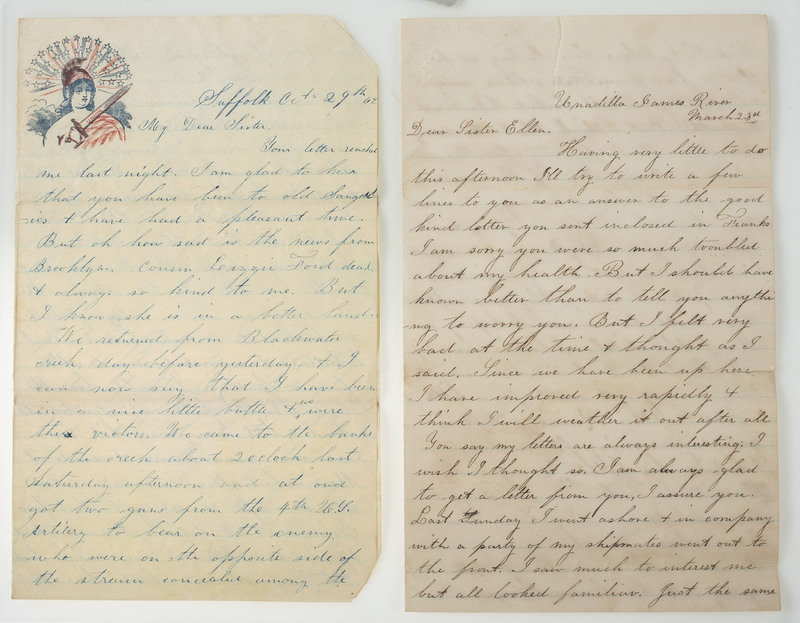 Suffolk Oct 29th 62
My Dear Sister.
Your letter reached
me last night. I am glad to hear
that you have been to old Sauga
ies & have had a pleasant time.
But oh how sad is the news from
Brooklyn. Cousin Lizzie Ford dead.
& always so kind to me. But
I know she is in a better land.
We returned from Blackwater
creek day before yesterday & I
can now say that I have been
in a nice little battle & we were
the victors. We came to the banks
of the creek about 2 oclock last
Saturday afternoon and at once
got two guns from the 4th U.S.
Artillery to bear on the enemy
who were on the opposite side of
the stream concealed among the
Unadilla James River
March 23rd
Dear Sister Ellen.
Having very little to do
this afternoon I'll try to write a few
lines to you as an answer to the good
kind letter you sent inclosed in Franks
I am sorry you were so much troubled
about my health. But I should have
known better than to tell you anythi
ng to worry you. But I felt very
bad at the time & thought as I
said. Since we have been up here
I have improved very rapidly &
think I will weather it out after all.
You say my letters are always interesting. I
wish I thought so. I am always glad
to get a letter from you, I assure you.
Last Sunday I went ashore & in company
with a party of my shipmates went out to
the front. I saw much to interest me
but all looked familiar. Just the same